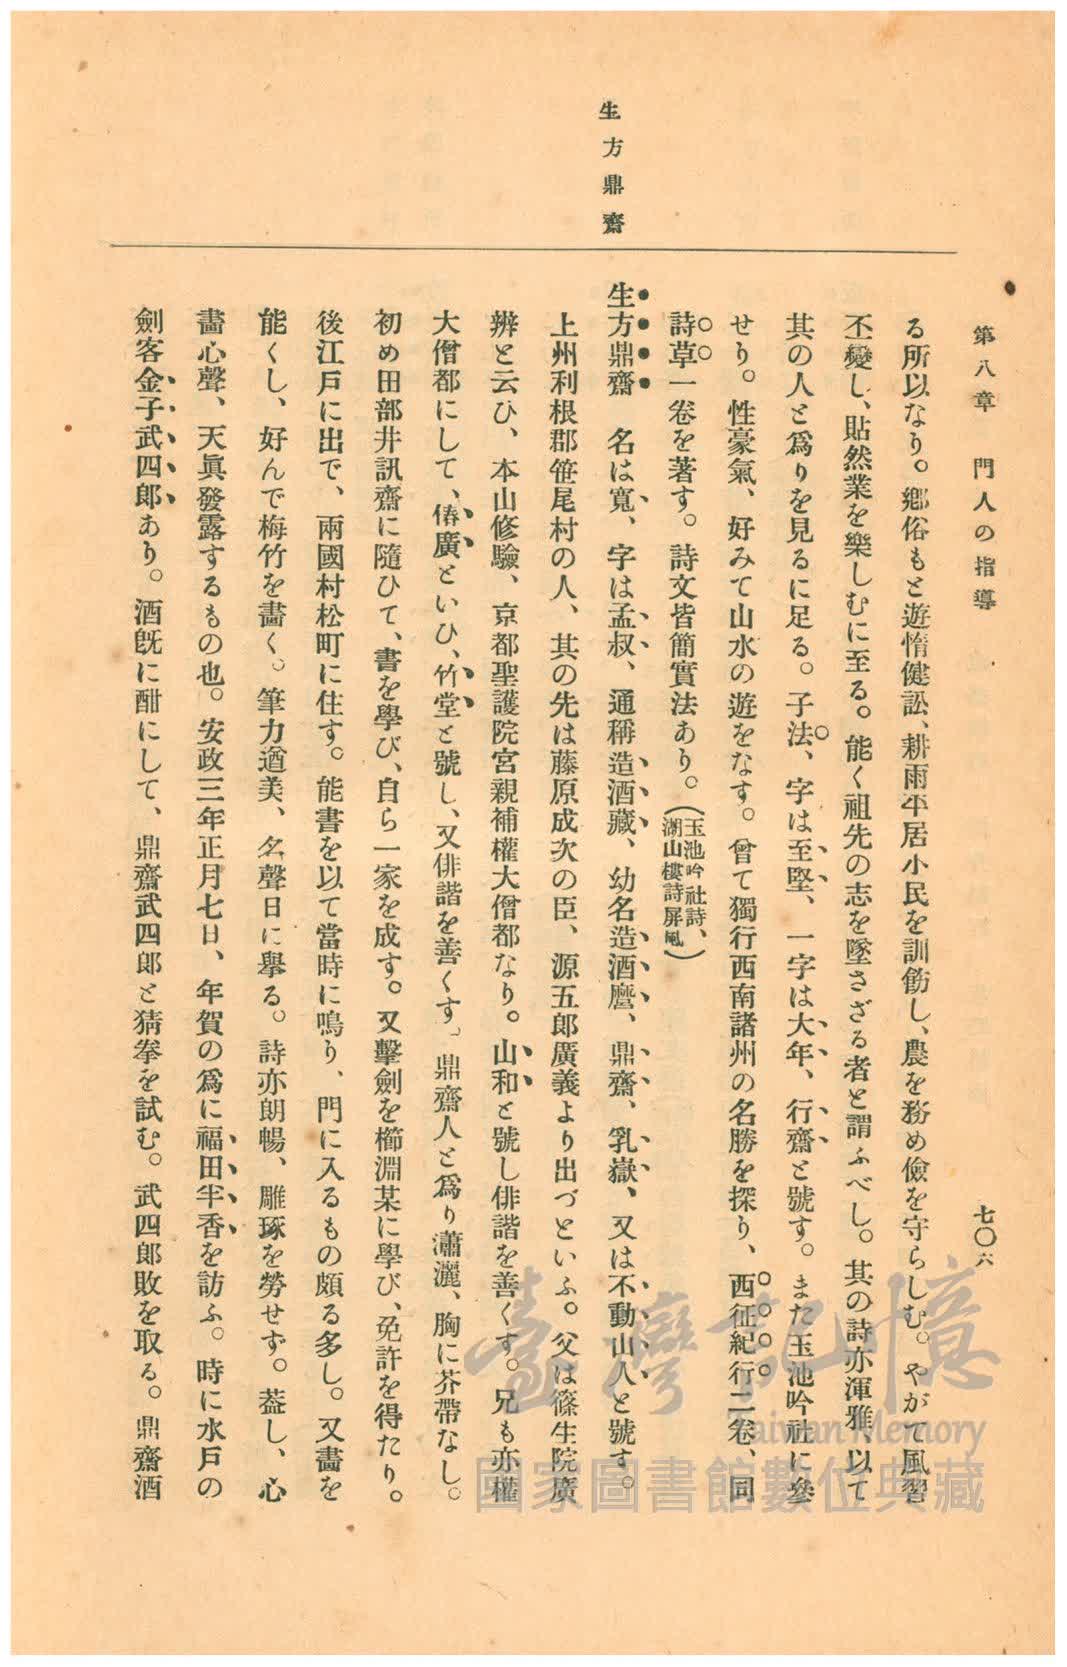 第八章　門人の指導
七〇六
生方鼎齋
る所以なり。鄕俗もと遊惰健訟、耕雨平居小民を訓飭し、農を務め儉を守らしむ。やがて風習
丕變し、貼然業を樂しむに至る。能く祖先の志を墜さざる者と謂ふべし。其の詩亦渾雅、以て
其の人と爲りを見るに足る。子法、字は至堅、一字は大年、行齋と號す。また玉池吟社に參
せり。性豪氣、好みて山水の遊をなす。曾て獨行西南諸州の名勝を探り、西征紀行二卷、同
詩草一卷を著す。詩文皆簡實法あり。（玉池吟社詩、
湖山樓詩屏風）
生方鼎齋　名は寬、字は孟叔、通稱造酒藏、幼名造酒麿、鼎齋、乳嶽、又は不動山人と號す。
上州利根郡笹尾村の人、其の先は藤原成次の臣、源五郎廣義より出づといふ。父は篠生院廣
辨と云ひ、本山修驗、京都聖護院宮親補權大僧都なり。山和と號し俳諧を善くす。兄も亦權
大僧都にして、偆廣といひ、竹堂と號し、又俳諧を善くす。鼎齋人と爲り瀟灑、胸に芥帶なし。
初め田部井訊齋に隨ひて、書を學び、自ら一家を成す。又擊劍を櫛淵某に學び、免許を得たり。
後江戶に出で、兩國村松町に住す。能書を以て當時に鳴り、門に入るもの頗る多し。又畵を
能くし、好んで梅竹を畵く。筆力遒美、名聲日に擧る。詩亦朗暢、雕琢を勞せず。葢し、心
畵心聲、天眞發露するもの也。安政三年正月七日、年賀の爲に福田半香を訪ふ。時に水戶の
劍客金子武四郎あり。酒旣に酣にして、鼎齋武四郎と猜拳を試む。武四郎敗を取る。鼎齋酒
臺灣記憶
Taiwan Memory
國家圖書館數位典藏